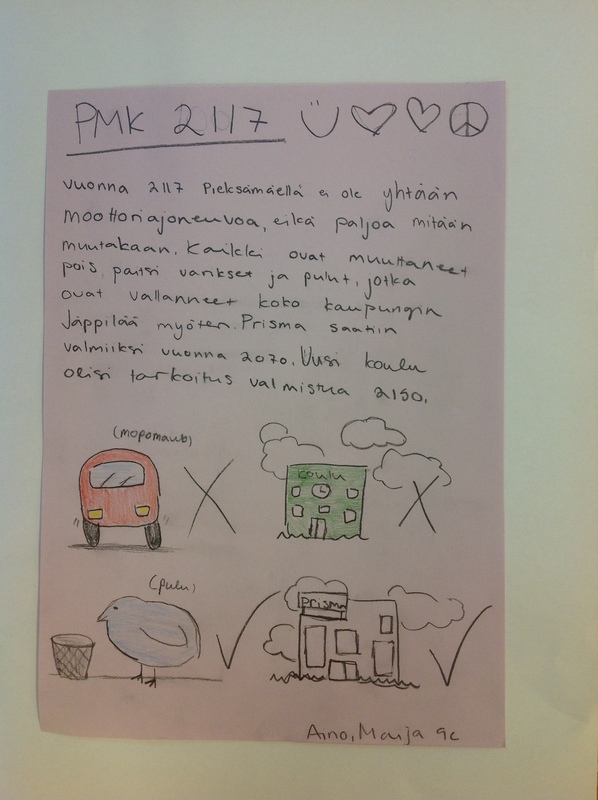 PMK 2117
Vuonna 2117 Pieksämäellä ei ole yhtään
moottoriajoneuvoa, eikä paljoa mitään
muutakaan. Kaikki ovat muuttaneet
pois, paitsi varikset ja pulut, jotka
ovat vallanneet koko kaupungin
Jäppilää myöten. Prisma saatiin
valmiiksi vuonna 2070. Uusi koulu
olisi tarkoitus valmistua 2150.
(mopomauto)
koulu
(pulu)
Prisma
Aino, Maija 9c